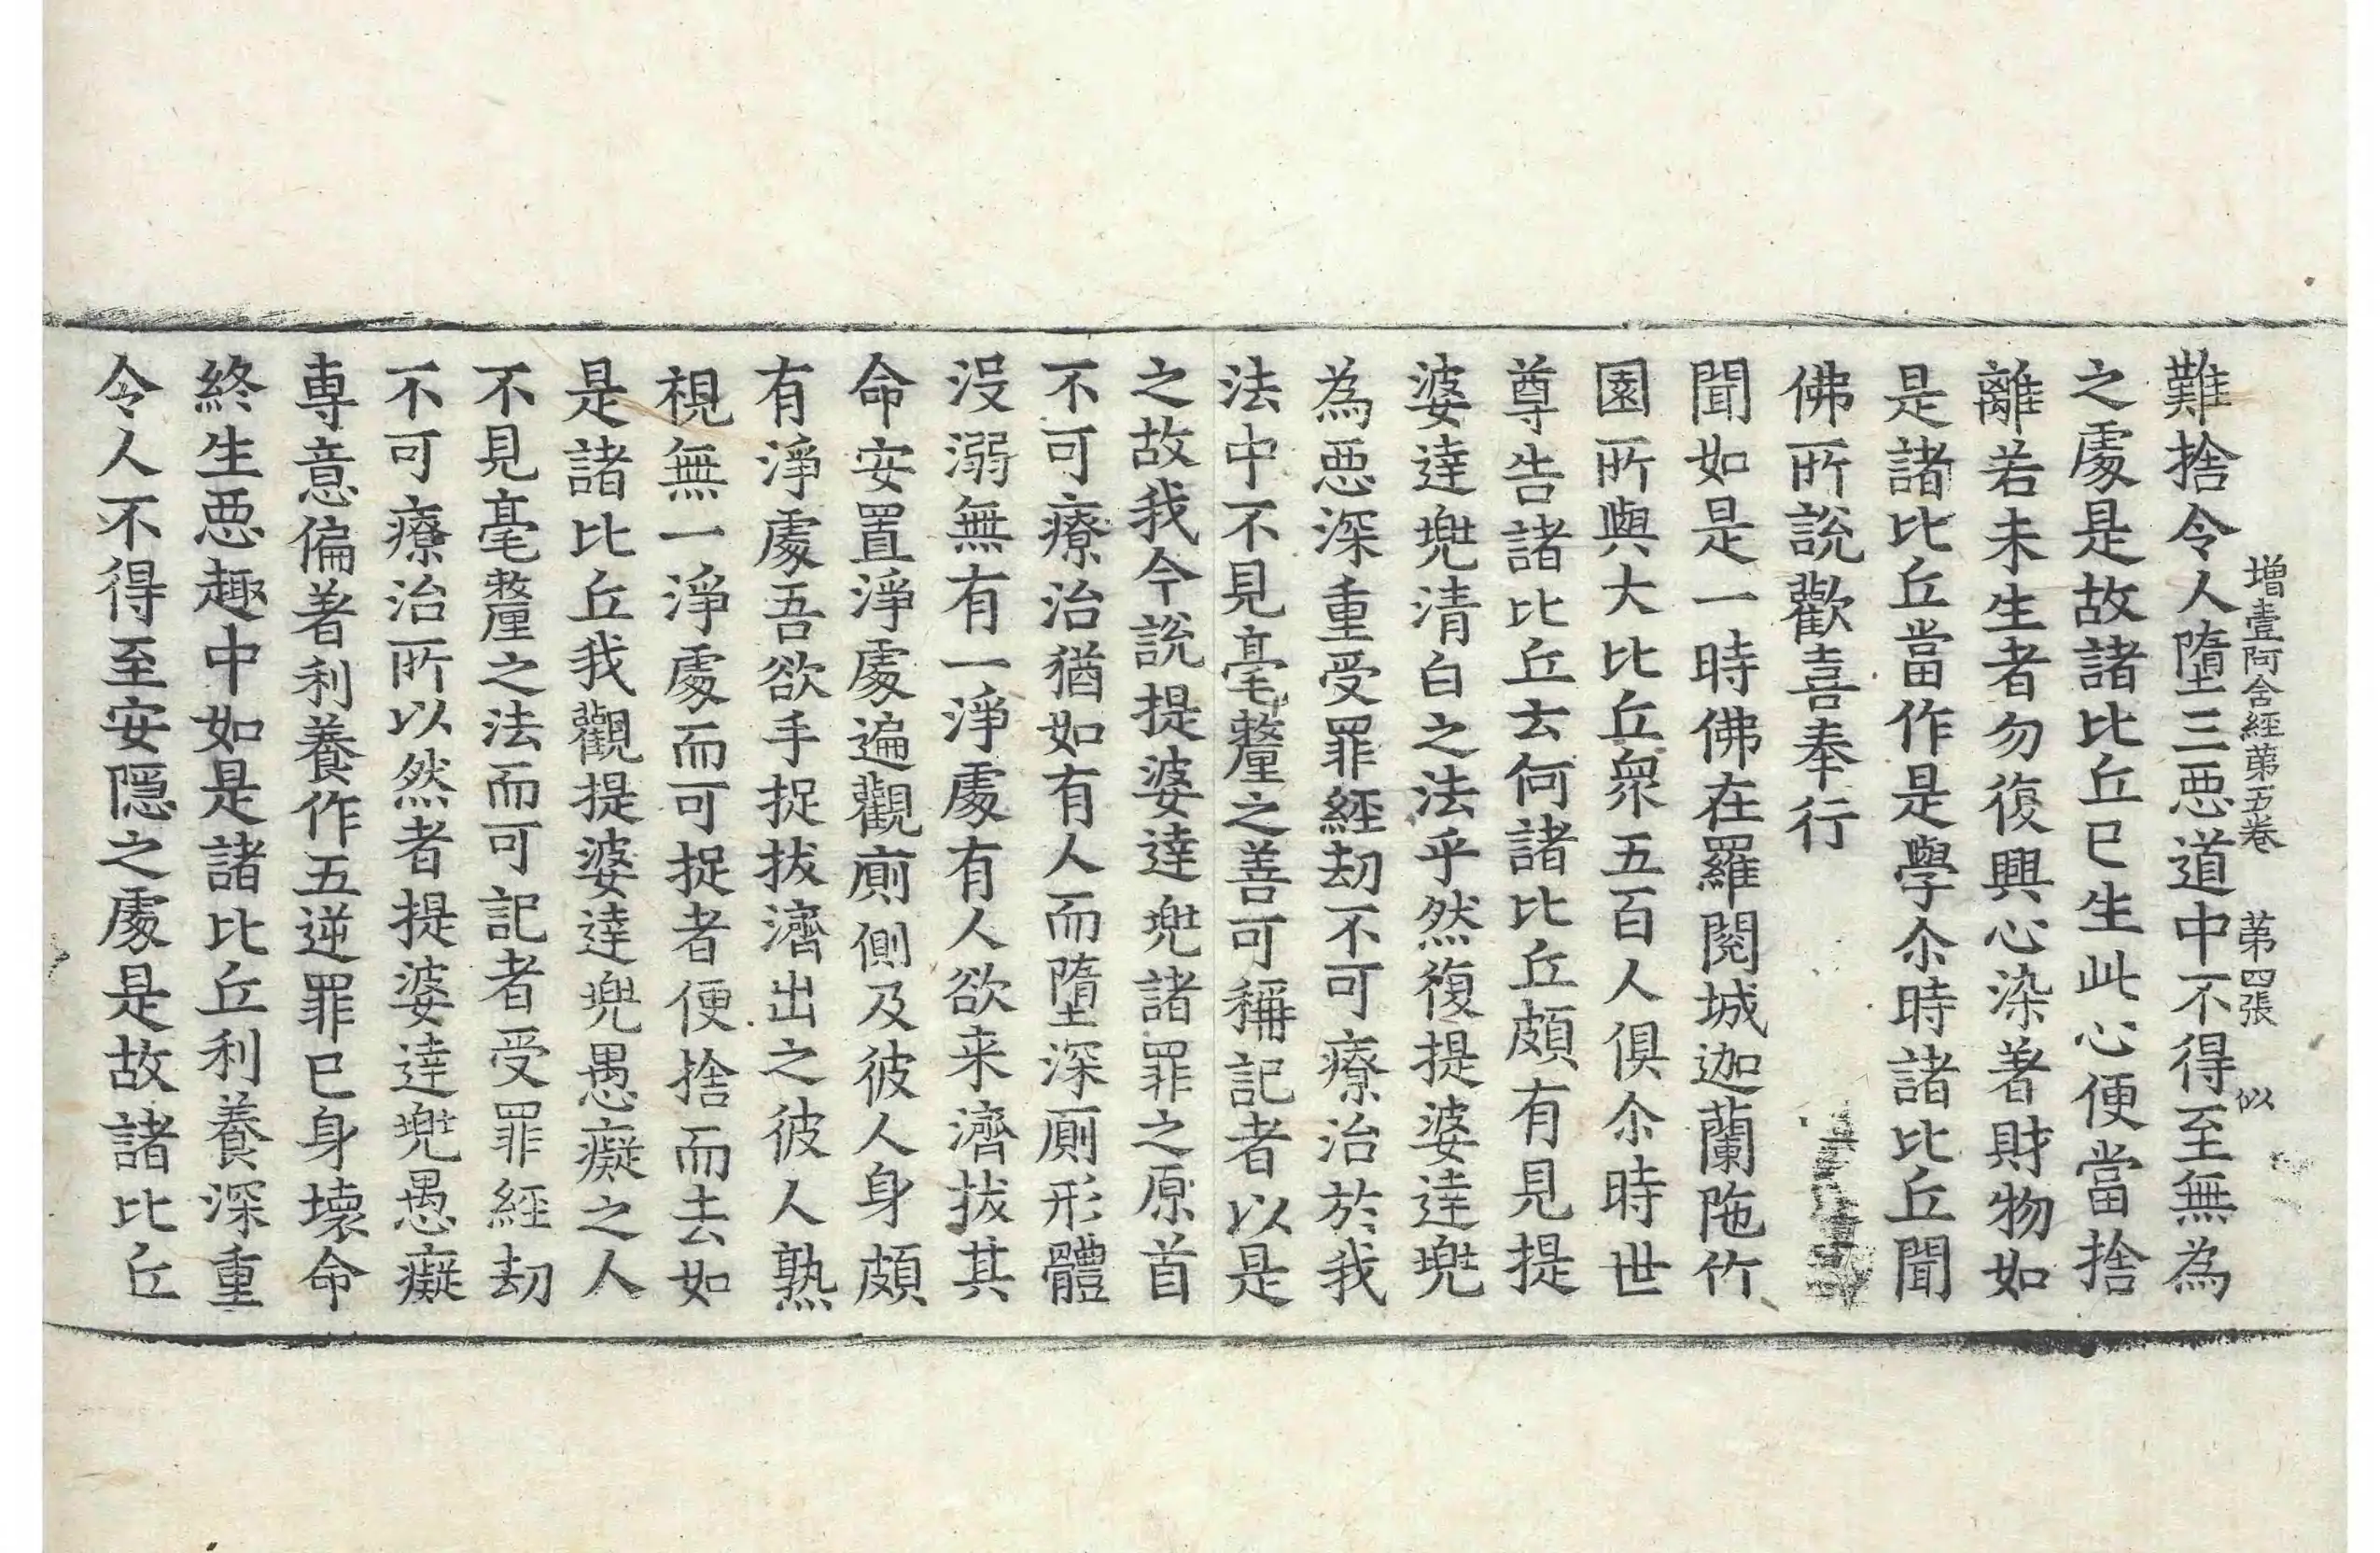 增壹阿含經第五卷 第四張 似
難捨令人墮三惡道中不得至無為
之處是故諸比丘已生此心便當捨
離若未生者勿復興心染著財物如
是諸比丘當作是學尒時諸比丘聞
佛所說歡喜奉行
聞如是一時佛在羅閱城迦蘭陁竹
園所與大比丘衆五百人俱尒時世
尊告諸比丘云何諸比丘頗有見提
婆達兜清白之法乎然復提婆達兜
為惡深重受罪經劫不可療治於我
法中不見毫釐之善可稱記者以是
之故我今說提婆達兜諸罪之原首
不可療治猶如有人而墮深廁形體
沒溺無有一淨處有人欲来濟拔其
命安置淨處遍觀廁側及彼人身頗
有淨處吾欲手捉拔濟出之彼人熟
視無一淨處而可捉者便捨而去如
是諸比丘我觀提婆達兜愚癡之人
不見毫釐之法而可記者受罪經劫
不可療治所以然者提婆達兜愚癡
專意偏著利養作五逆罪已身壞命
終生惡趣中如是諸比丘利養深重
令人不得至安隱之處是故諸比丘